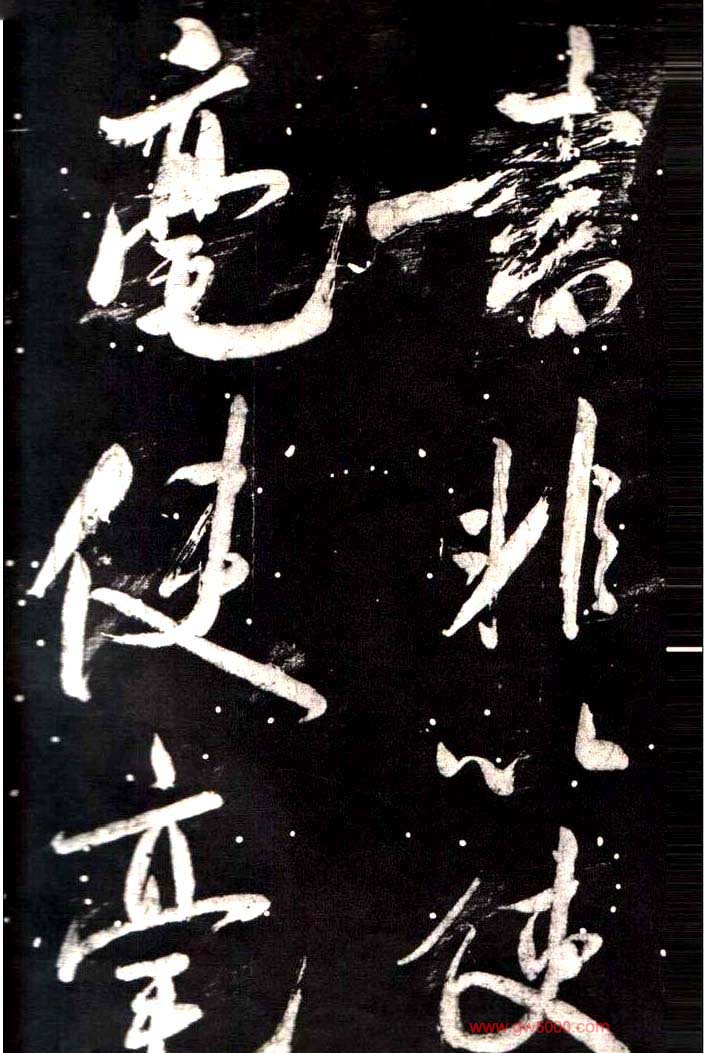 書非以使
毫使毫
www.gw5000.com